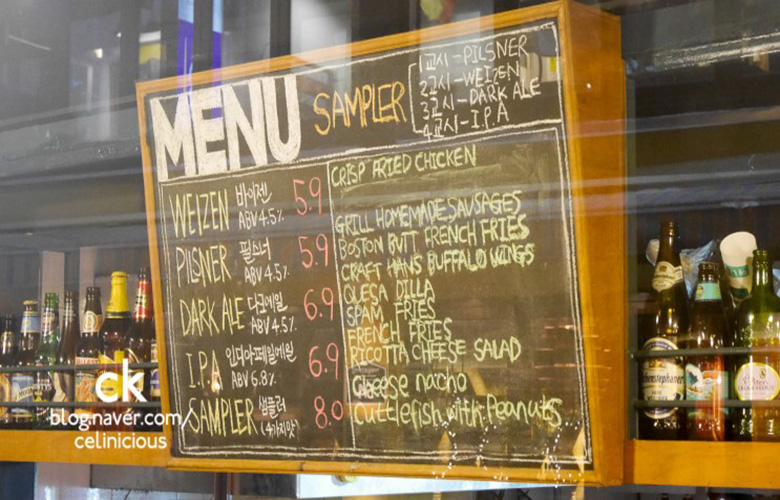 MENU SAMPLER
1교시-PILSNER
2교시-WEIZEN
3교시-DARK ALE
4교시-I.P.A
WEIZEN 바이젠 5.9
ABV 4.5%
PILSNER 필스너 5.9
ABV 4.5%
DARK ALE 다크에일 6.9
ABV 4.5%
I.P.A 인디아페일에일 6.9
ABV 6.8%
SAMPLER 샘플러 8.0
(4가지맛)
CRISP FRIED CHICKEN
GRILL HOMEMADE SAUSAGES
BOSTON BUTT FRENCH FRIES
CRAFT HANS BUFFALO WINGS
QUESA DILLA
SPAM FRIES
FRENCH FRIES
RICOTTA CHEESE SALAD
Cheese nacho
Cuttlefish with Peanuts
ck
blog.naver.com/
celinicious